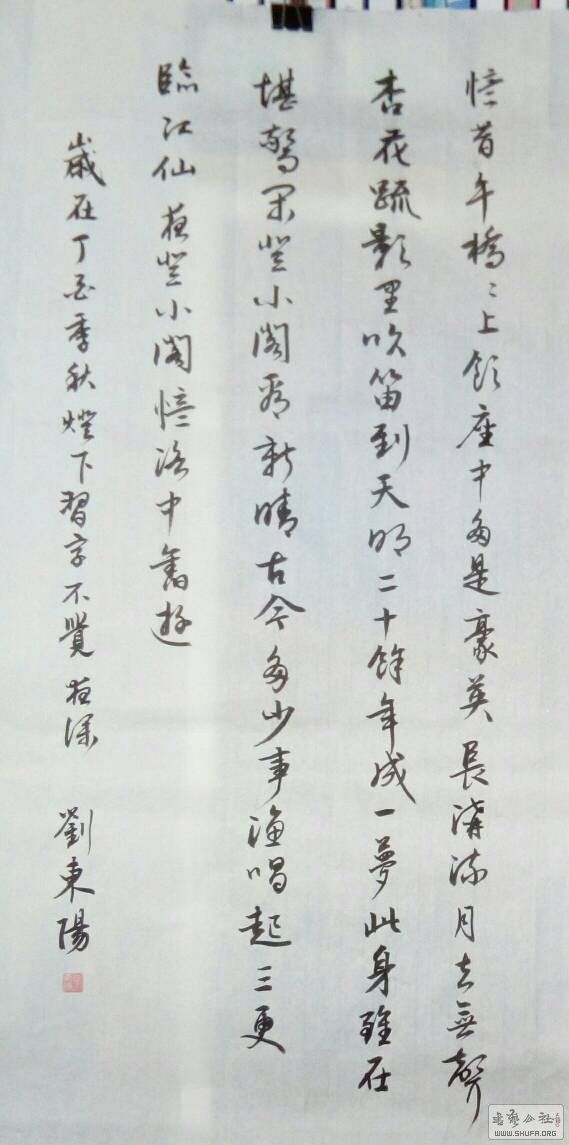 憶昔午橋橋上飲座中多是豪英長溝流月去無聲
杏花疏影里吹笛到天明二十餘年成一夢此身雖在
堪驚閑登小閣看新晴古今多少事漁唱起三更
臨江仙夜登小閣憶洛中舊遊
歲在丁酉季秋燈下習字不覺夜深 劉東陽
書藝公社
WWW.SHUFA.ORG